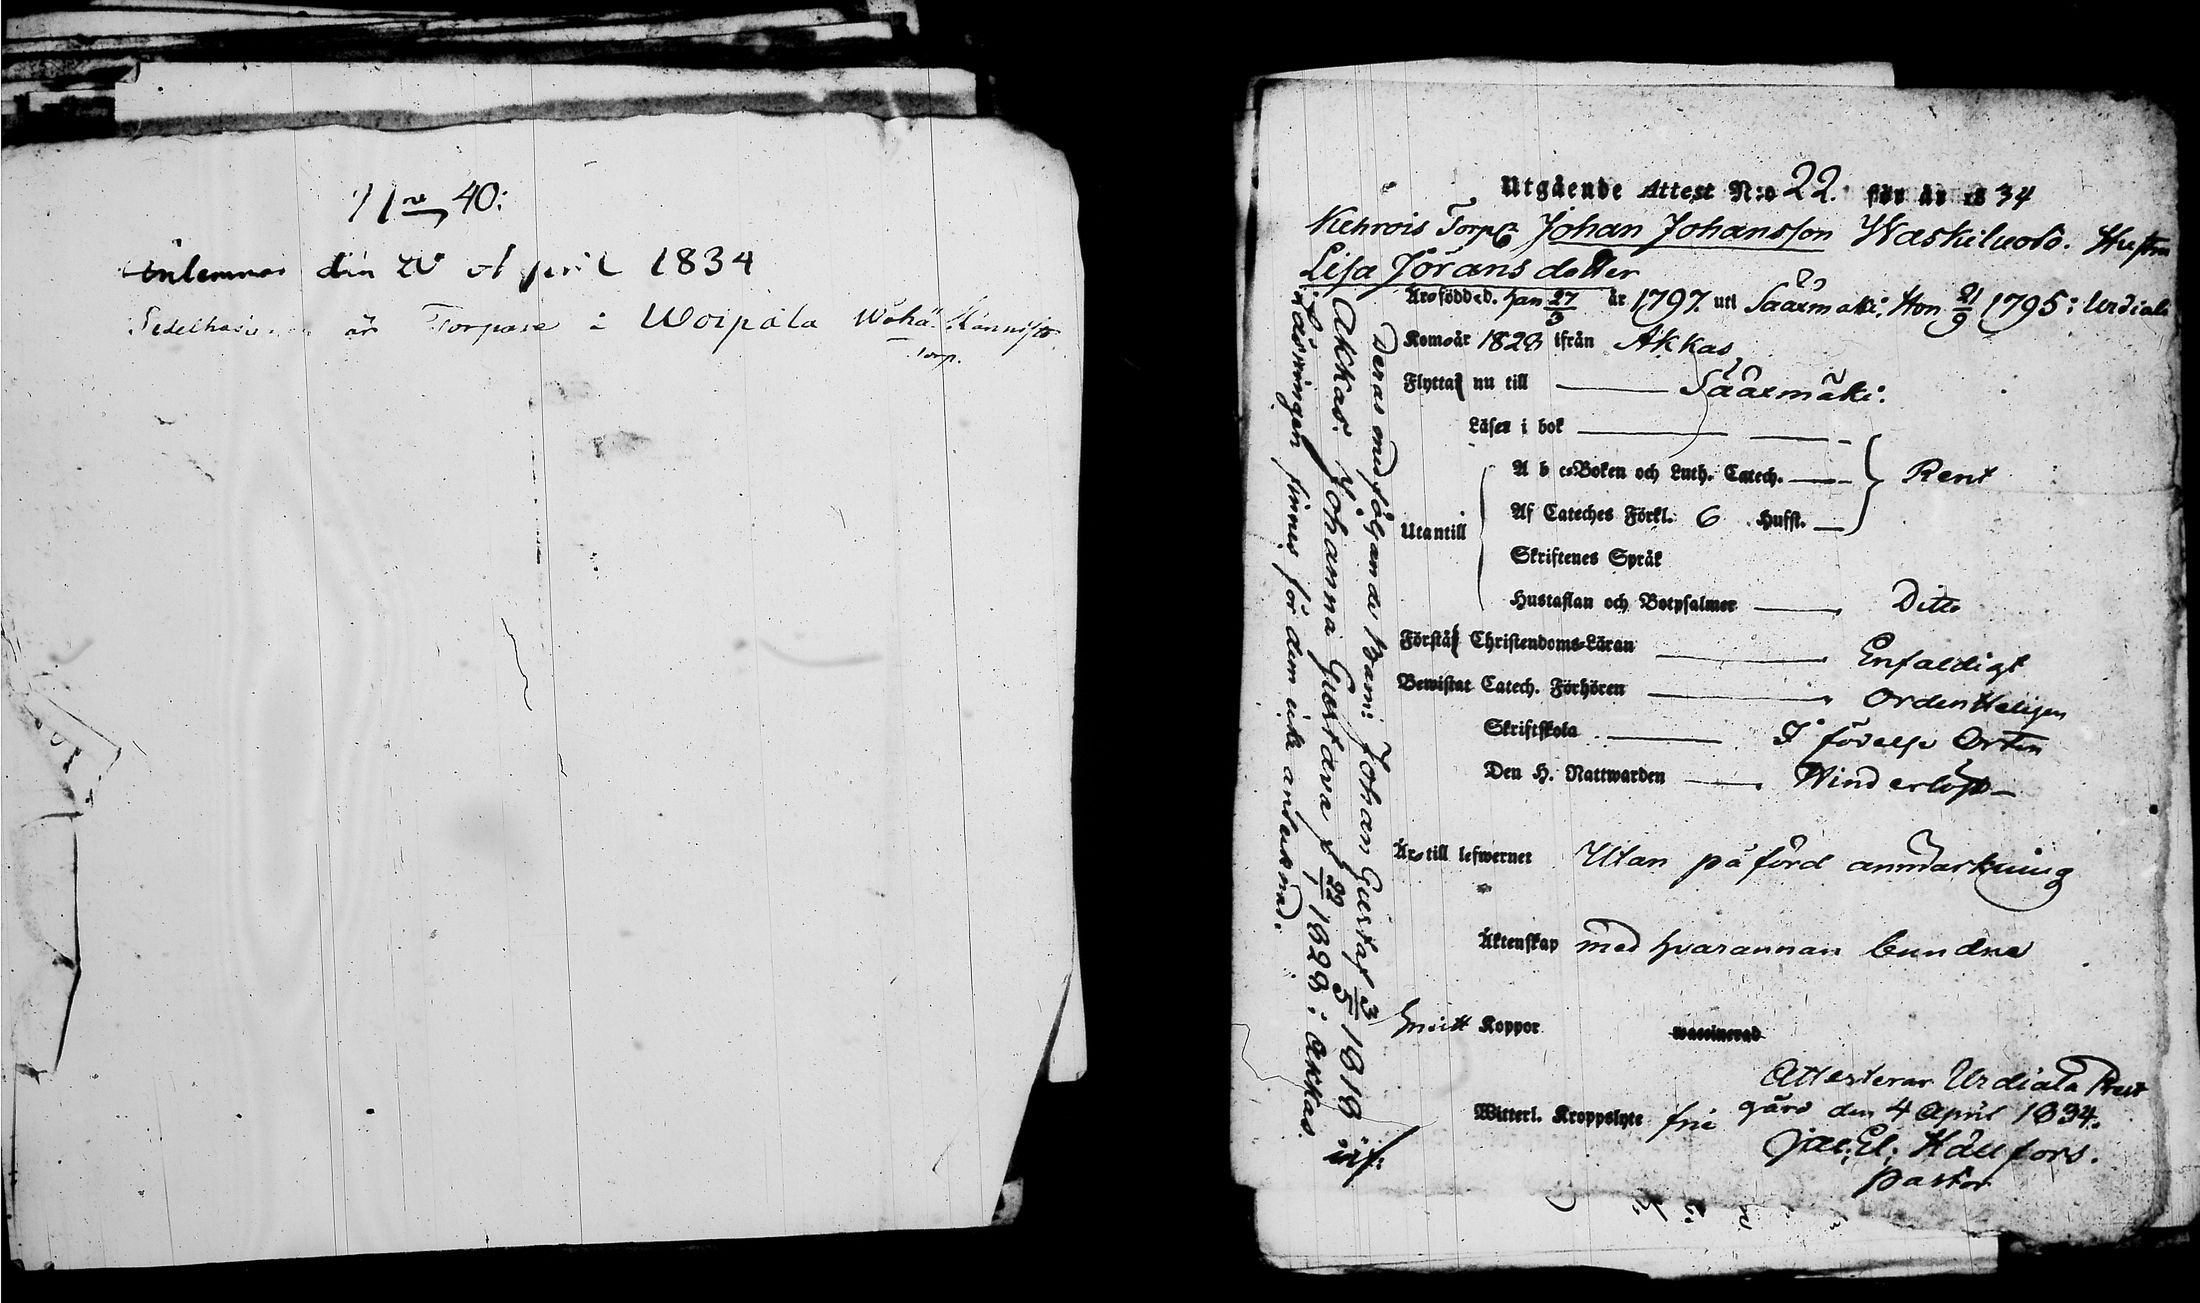 No 40:
Inlemnas den 20 April 1834
Sedelhafvaren är Torpare i Woipala Wähä Männistö
Torp.
Utgående Attest N:o 22. för år 1834
Kehrois Torp. Johan Johansson Waskiluoto. Hustru
Lisa Jöransdotter
Äro född d. han 27/3 år 1797. uti Sääxmäki: Hon 21/9 1795: Urdiala
Kom år 1828 ifrån Akkas
Flytta nu till Sääxmäki.
Läser i bok
A b c-Boken och Luth. Catech. Rent
Utantill
Af Cateches Förkl. 6 Hufst.
Skriftenes Språk
Hustaflan och Botpsalmer Ditto
Förstå Christendoms-Läran Enfaldigt
Bewistat Catech. Förhören Ordentligen
Skriftskola I födelse Orten
Den H. Nattwarden
Äro till lefwernet Utan påförd anmärkning
Äktenskap med hvarannan bundna
Koppor waccinerad
Witterl. Kroppslyte fria
Attesterar Urdiala Prest
gård den 4 April 1834.
Jac: El: Hällfors.
Pastor
Deras medföljande barn: Johan Gustaf 3/5 1818 i
Akkas. Johanna Gustava f 22/1 1828 i Akkas.
Läsningen finnes för dem icke antecknad.